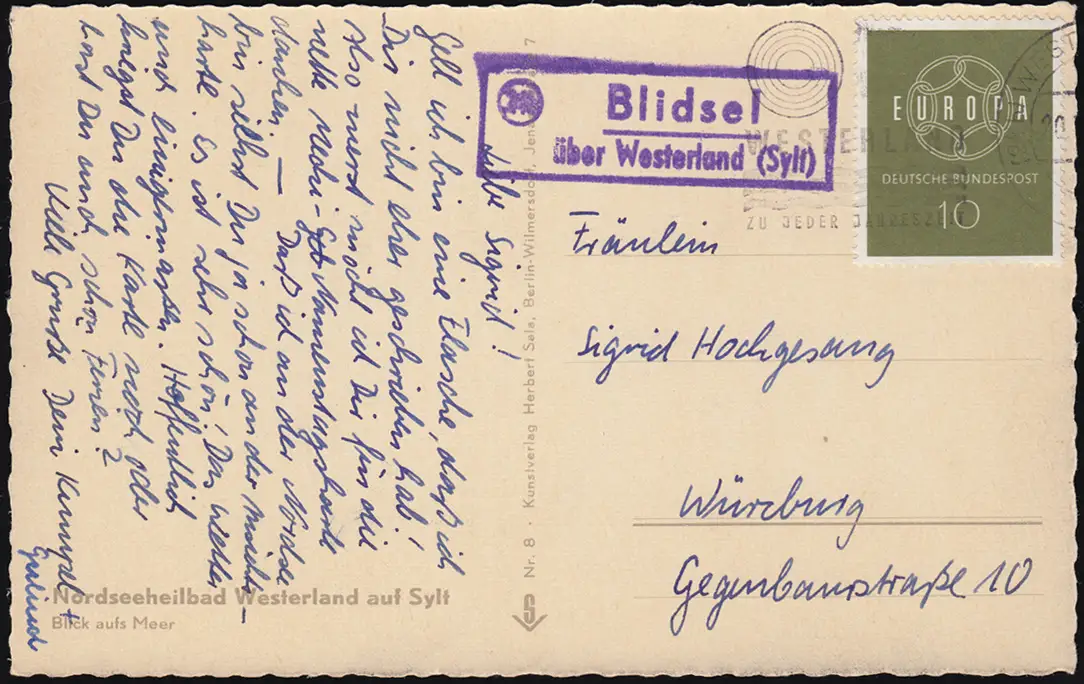 Liebe Sigrid!
Gell ich bin eine Flasche, daß ich
Dir nicht eher geschrieben hab!
Also zuerst möcht ich Dir für die
nette Namenstagskarte
danken. — Daß ich an der Nordsee
bin siehst Du ja schon an der Ansichts-
karte. Es ist sehr schön! Das Wetter
auch einigermaßen. Hoffentlich
kriegst Du die Karte noch, oder
hast Du auch schon Ferien?
Viele Grüße Dein
Nordseeheilbad Westerland auf Sylt
Blick aufs Meer
Nr. 8 · Kunstverlag Herbert Sala, Berlin-Wilmersdorf, Jen
7
S
Blidsel
über Westerland (Sylt)
WESTERLAND
ZU JEDER JAHRESZEIT
EUROPA
DEUTSCHE BUNDESPOST
10
Fräulein
Sigrid Hochgesang
Würzburg
Gegenbaurstraße 10